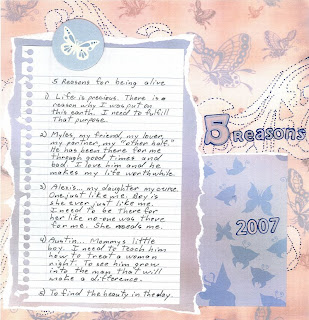 5 Reasons for being alive
1) Life is precious. There is a
reason why I was put on
this earth. I need to fulfill
That purpose.
2) Myles, my friend, my lover,
my partner, my "other half."
He has been there for me
through good times and
bad. I love him and he
makes my life worthwhile.
3) Alexis... my daughter, my curse.
One just like me. Boy is
she ever just like me.
I need to be There for
her like no-one was there
for me. She needs me.
4) Austin... Mommy's little
boy. I need to teach him
how to treat a woman
right. To see him grow
into the man that will
make a difference.
5) To find the beauty in the day.
5 Reasons
2007